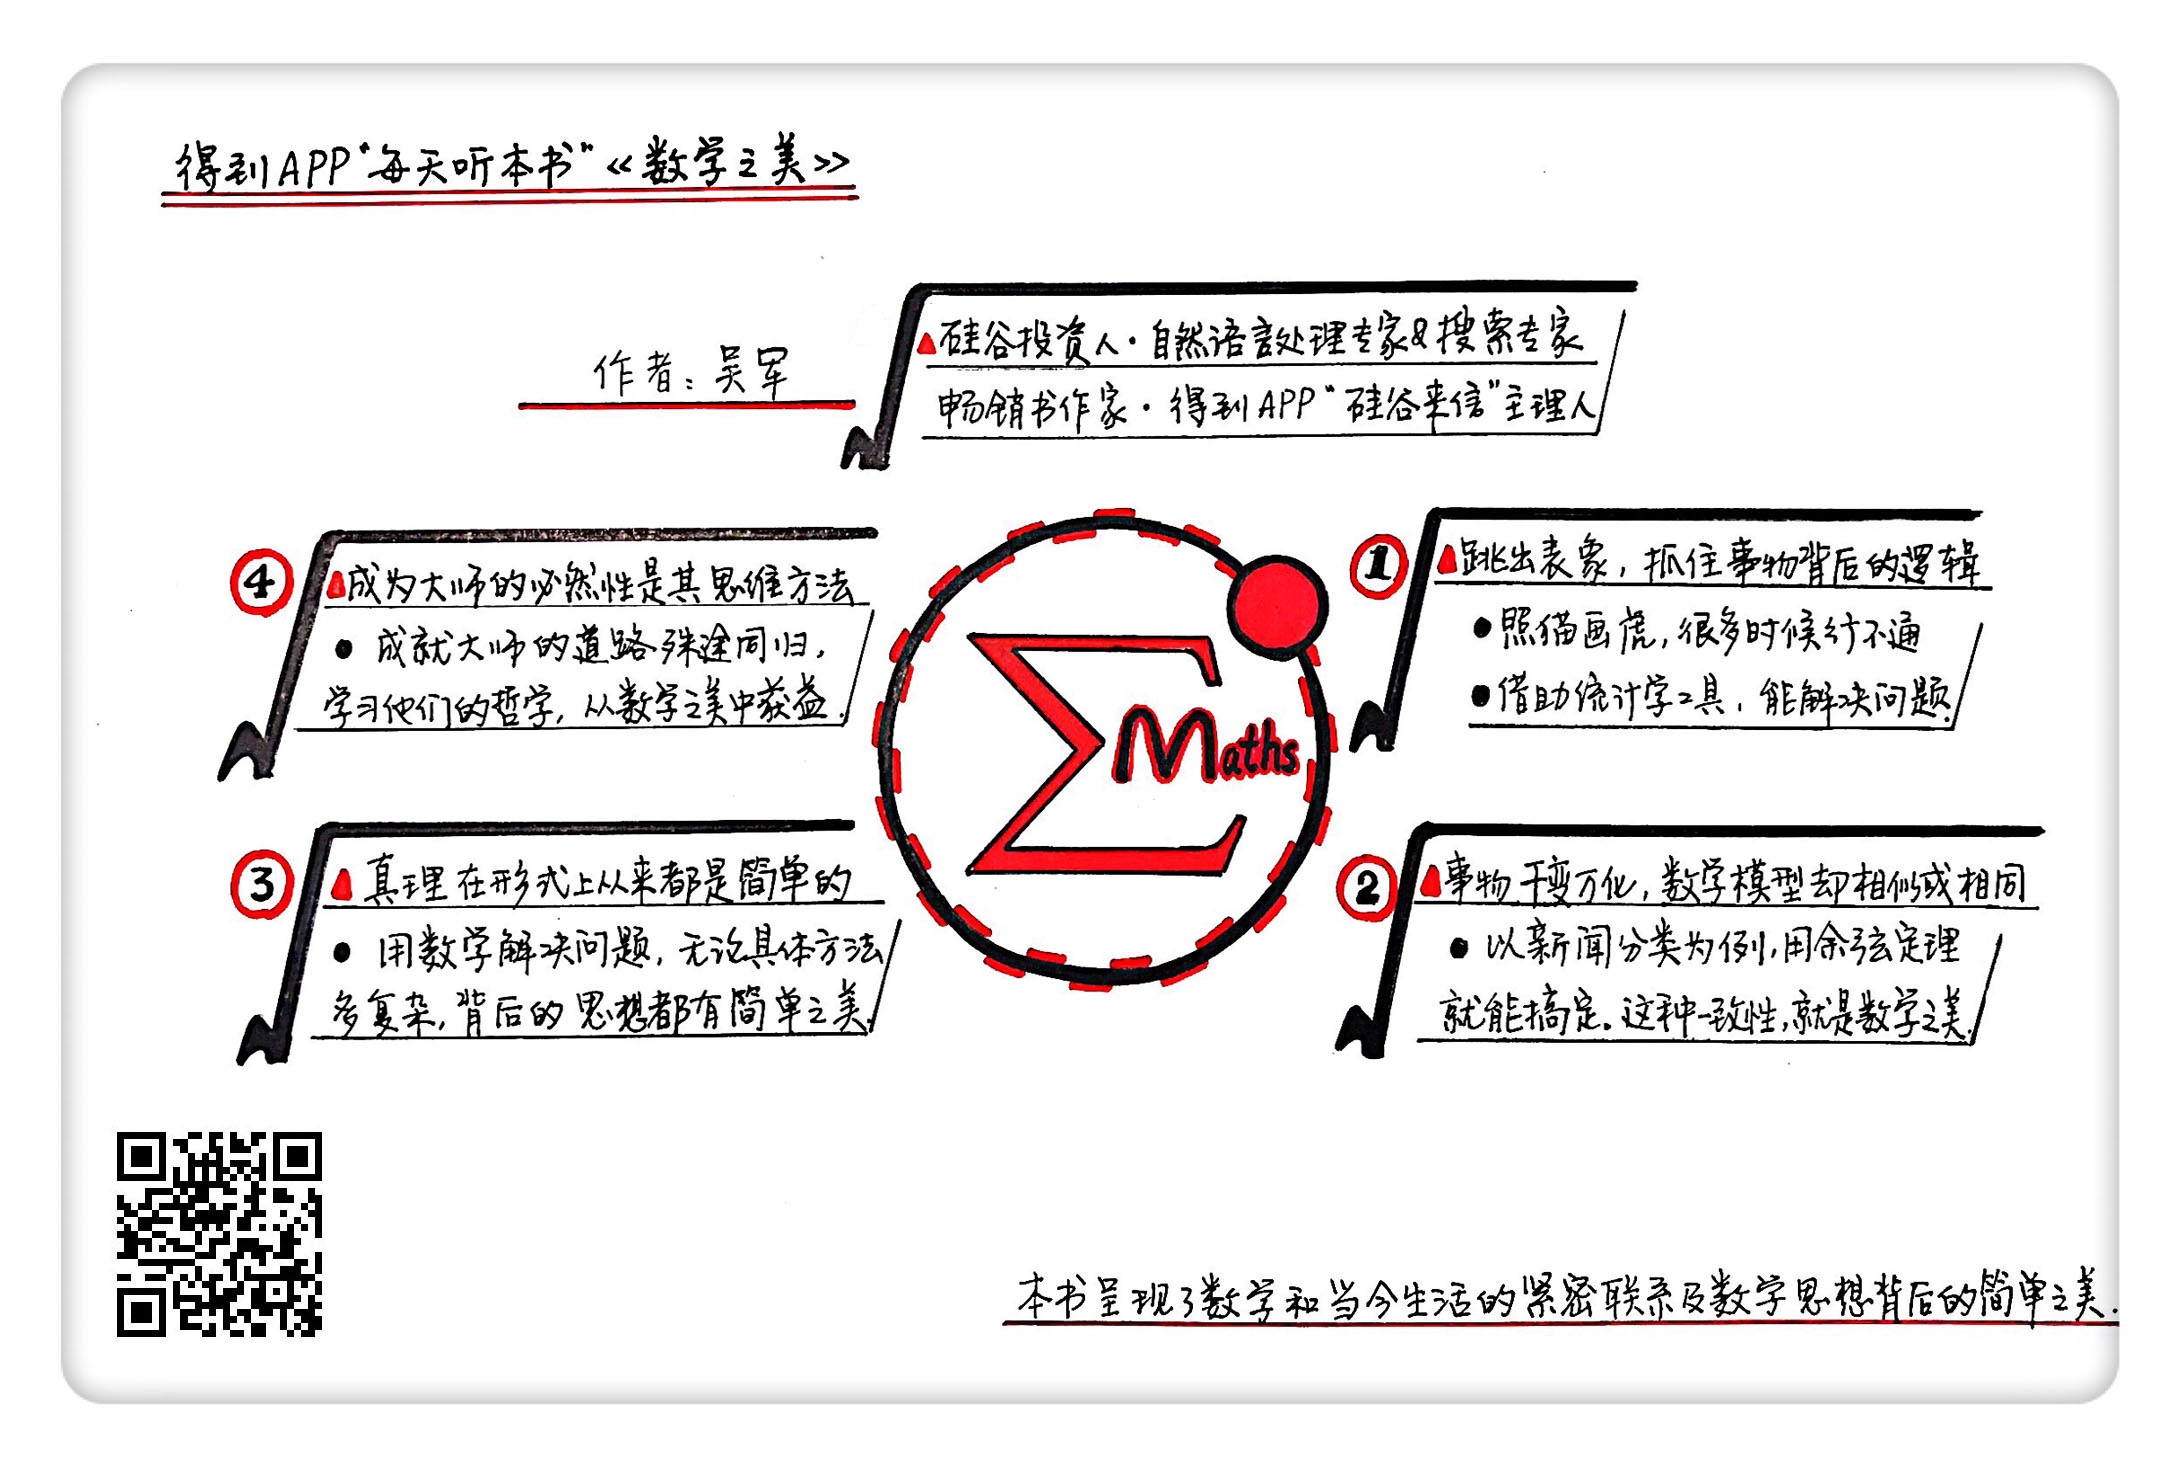 得到APP“每天听本书”《数学之美》
作者：吴军
硅谷投资人·自然语言处理专家&搜索专家
畅销书作家·得到APP“硅谷来信”主理人
Maths
1
跳出表象，抓住事物背后的逻辑
照猫画虎，很多时候行不通
借助统计学工具，能解决问题.
2
事物千变万化，数学模型却相似或相同
以新闻分类为例，用余弦定理
就能搞定。这种一致性，就是数学之美.
3
真理在形式上从来都是简单的
用数学解决问题，无论具体方法
多复杂，背后的思想都有简单之美.
4
成为大师的必然性是其思维方法
成就大师的道路殊途同归，
学习他们的哲学，从数学之美中获益.
本书呈现了数学和当今生活的紧密联系及数学思想背后的简单之美.